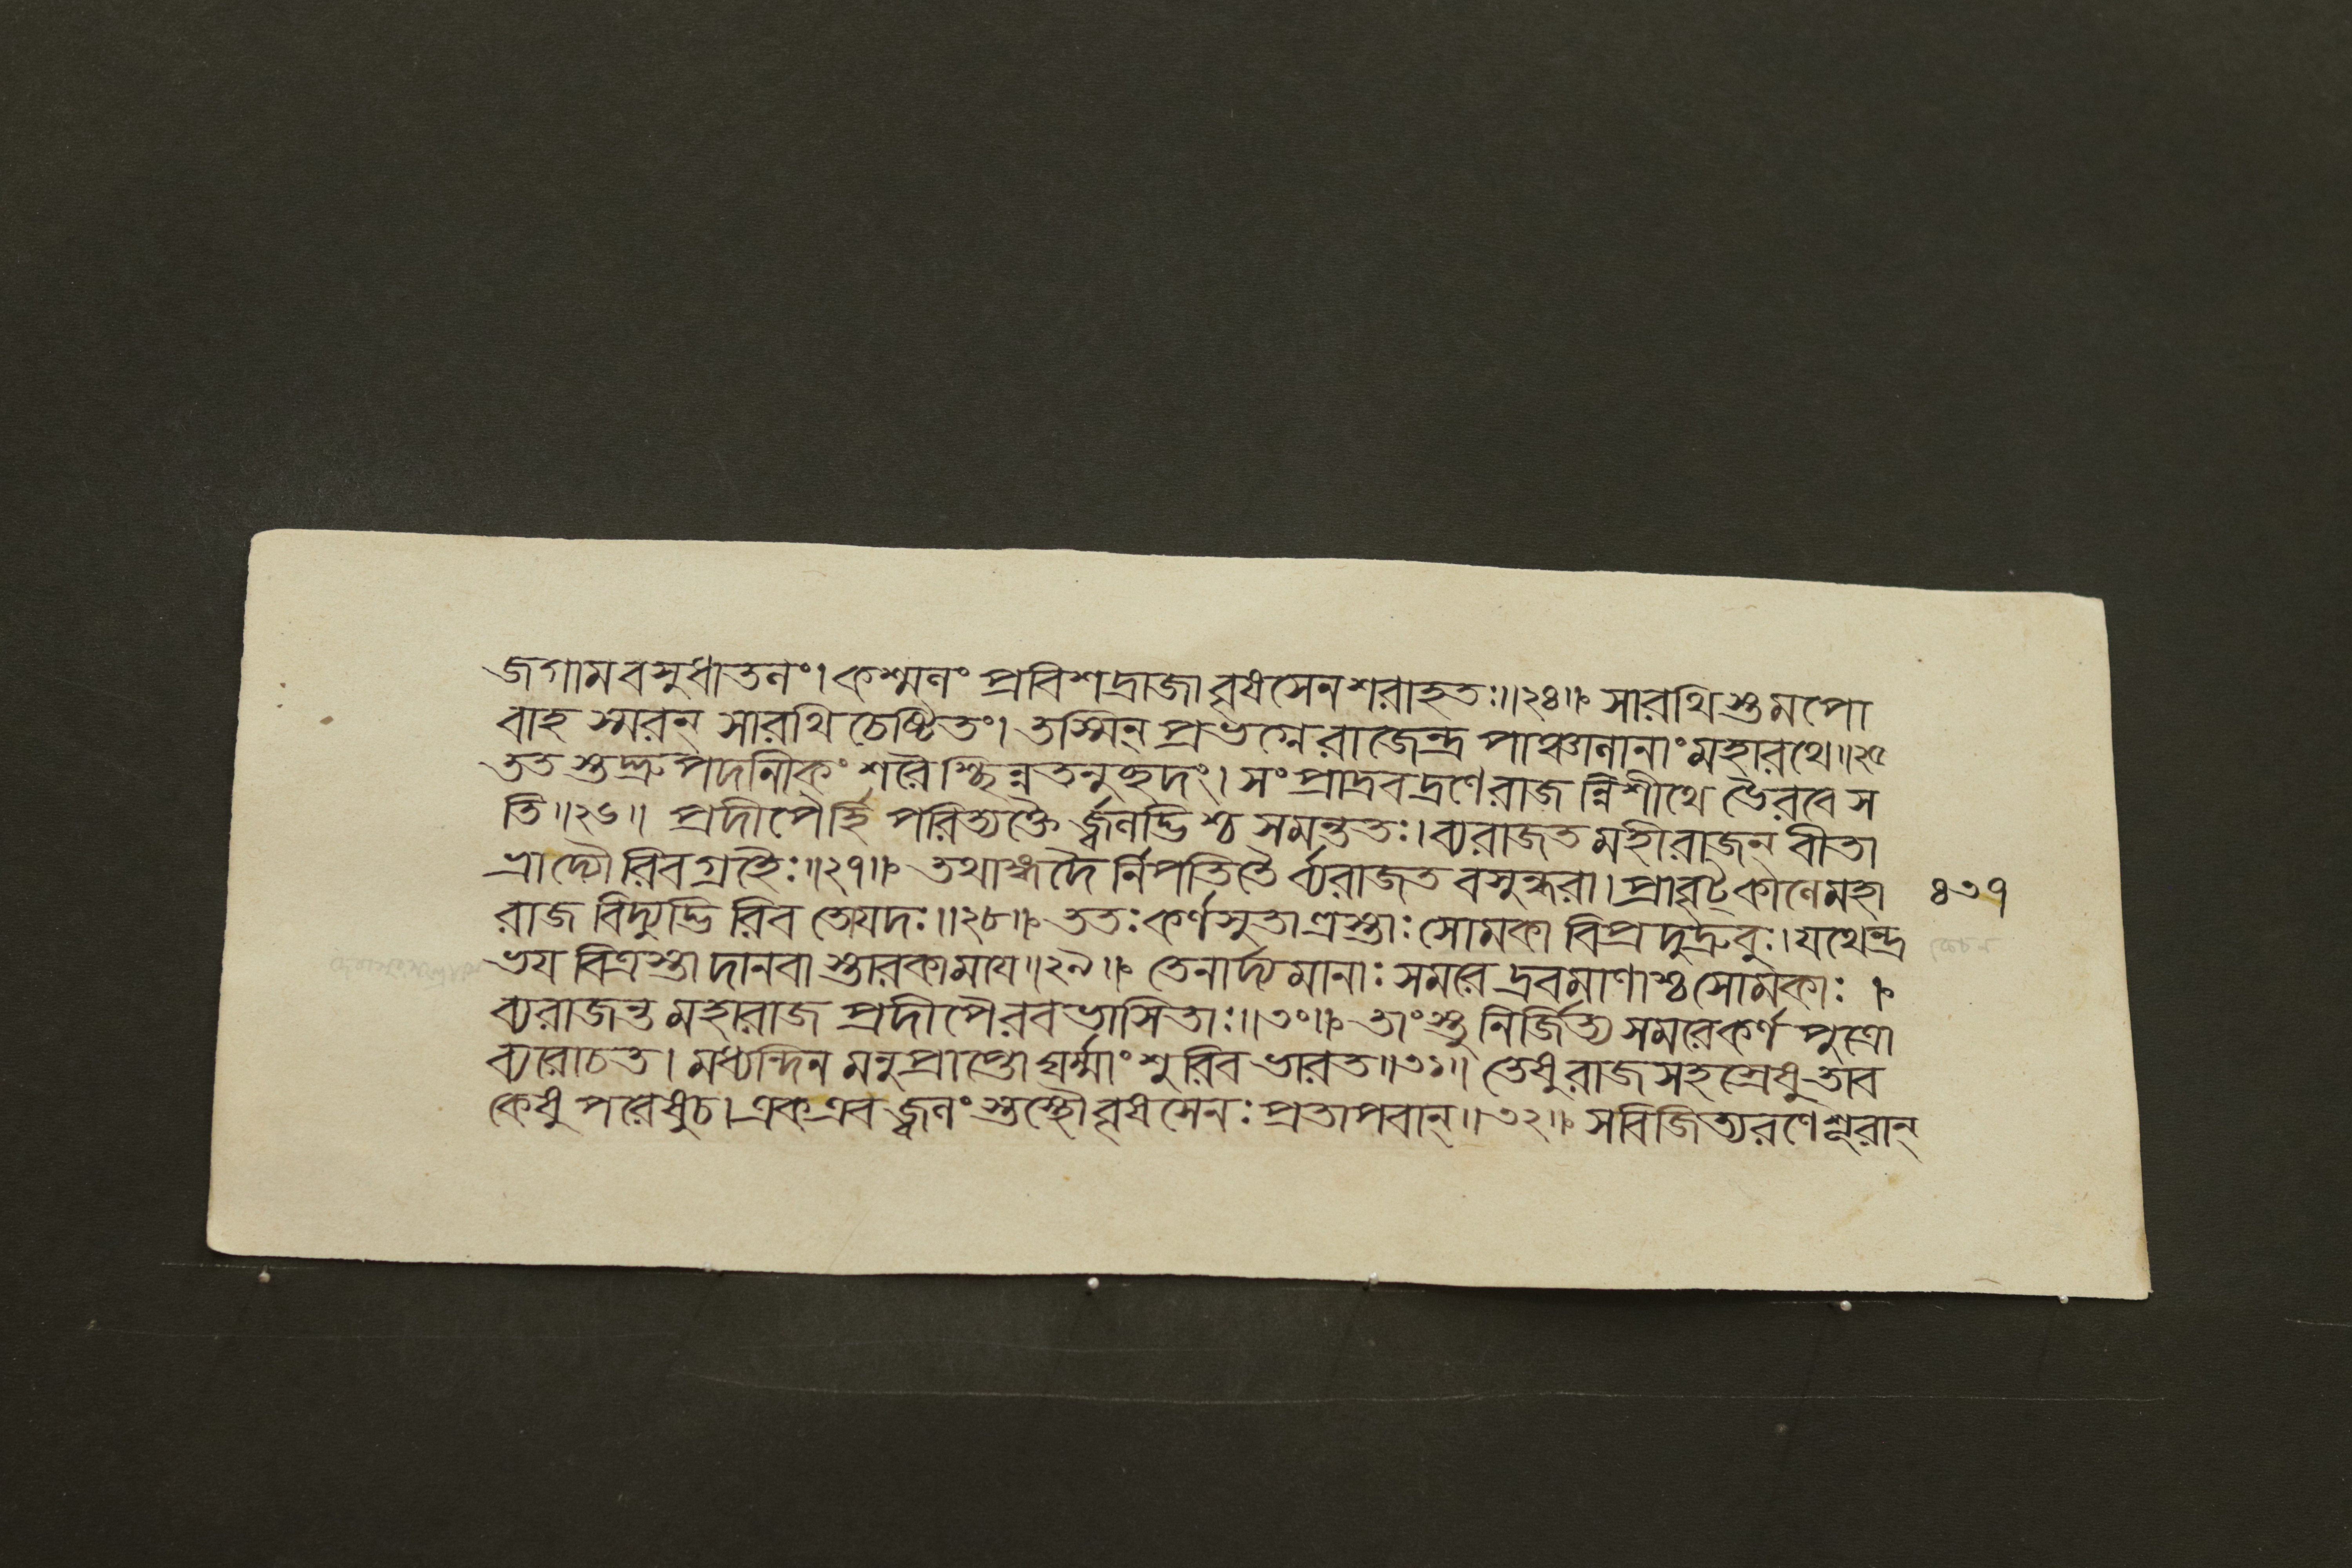 জগাম বসুধাতলং। কশ্মলং প্রবিশদ্রাজা বৃষসেন শরাহতঃ॥২৪॥ সারথিস্তমপো
বাহ স্মরন্ সারথি চেষ্টিতং। তস্মিন্ প্রভগ্নে রাজেন্দ্র পাঞ্চালানাং মহারথে॥২৫
তত স্তুদ্দ্রুপদনিকং শরৈশ্ছিন্নতনুচ্ছদং। সংপ্রাদ্রবদ্রণে রাজন্নিশীথে ভৈরবে স
তি॥২৬॥ প্রদীপৈর্হি পরিত্যক্তৈ র্জ্বলদ্ভিশ্চ সমন্ততঃ। ব্যরাজত মহী রাজন্ বীতা
ভ্রা দ্যৌরিব গ্রহৈঃ॥২৭॥ তথাঙ্গদৈ র্নিপতিতৈ র্ব্যরাজত বসুন্ধরা। প্রাবৃট্কালে মহা ৪৩৭
রাজ বিদ্যুদ্ভিরিব তোযদঃ॥২৮॥ ততঃ কর্ণসুতা ত্রস্তাঃ সোমকা বিপ্রদুদ্রুবুঃ। যথেন্দ্র
ভয বিত্রস্তা দানবা স্তারকাময়ে॥২৯॥ তেনার্দ্যমানাঃ সমরে দ্রবমাণাশ্চ সোমকাঃ।
ব্যরাজন্ত মহারাজ প্রদীপৈরবভাসিতাঃ॥৩০॥ তাংস্তু নির্জিত্য সমরে কর্ণ পুত্রো
ব্যরোচত। মধ্যন্দিন মনুপ্রাপ্তো ঘর্ম্মাংশুরিব ভারত॥৩১॥ তেষু রাজসহস্রেষু তাব
কেষু পরেষু চ। এক এব জ্বলং স্তস্থৌ বৃষসেনঃ প্রতাপবান্॥৩২॥ স বিজিত্য রণে শূরান্